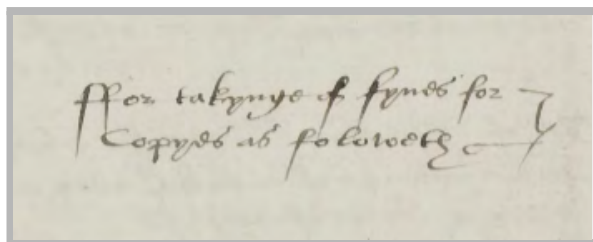 ffor takynge of fynes for
Copyes as foloweth